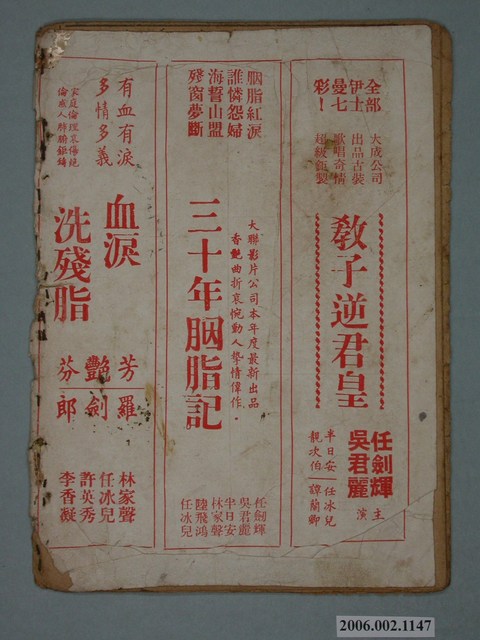 全部
伊士
曼七
彩！
大成公司
出品古裝
歌唱奇情
超級鉅製
教子逆君皇
任劍輝
吳君麗
主演
半日安
靚次伯
任冰兒
譚蘭卿
胭脂紅淚
誰憐怨婦
海誓山盟
殘窗夢斷
三十年胭脂記
大聯影片公司本年度最新出品
香艷曲折哀惋動人摯情偉作．
任劍輝
吳君麗
半日安
林家聲
陸飛鴻
任冰兒
有血有淚
多情多義
家庭倫理哀傷絕
倫感人肺腑鉅鑄
血淚
洗殘脂
芳艷芬
羅劍郎
林家聲
任冰兒
許英秀
李香凝
2006.002.1147